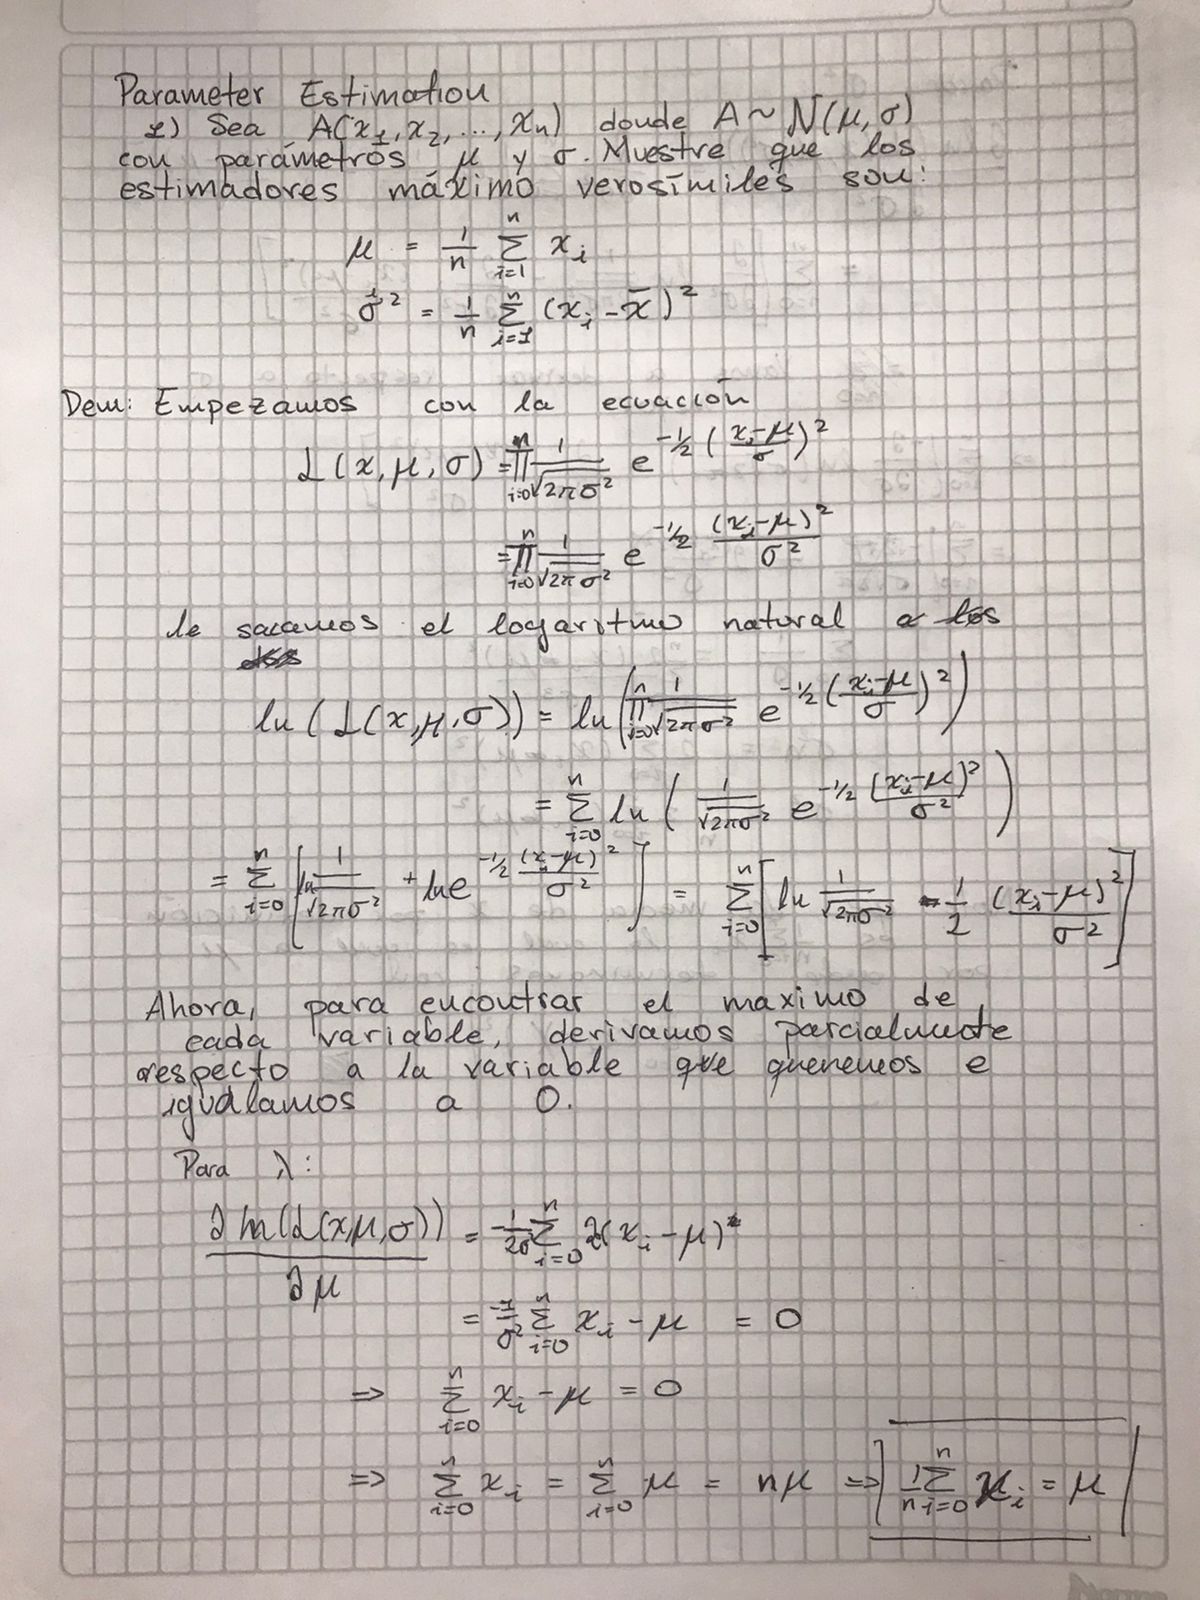 Parameter Estimation
1) Sea A(x₁, x₂, ..., xₙ) donde A ~ N(μ, σ)
con parámetros μ y σ. Muestre que los
estimadores máximo verosímiles son:
μ = 1/n Σ_{i=1}^{n} x_i
σ̂² = 1/n Σ_{i=1}^{n} (x_i - x̄)²
Dem: Empezamos con la ecuación
L(x, μ, σ) = Π_{i=0}^{n} 1/√(2πσ²) e^{-1/2 ((x_i-μ)/σ)²}
= Π_{i=0}^{n} 1/√(2πσ²) e^{-1/2 (x_i-μ)²/σ²}
le sacamos el logaritmo natural a los
ln(L(x, μ, σ)) = ln(Π_{i=0}^{n} 1/√(2πσ²) e^{-1/2 ((x_i-μ)/σ)²})
= Σ_{i=0}^{n} ln(1/√(2πσ²) e^{-1/2 (x_i-μ)²/σ²})
= Σ_{i=0}^{n} [ln 1/√(2πσ²) + ln e^{-1/2 (x_i-μ)²/σ²}] = Σ_{i=0}^{n} [ln 1/√(2πσ²) - 1/2 (x_i-μ)²/σ²]
Ahora, para encontrar el maximo de
cada variable, derivamos parcialmente
respecto a la variable que queremos e
igualamos a 0.
Para λ:
∂ ln(L(x,μ,σ))/∂μ = -1/2σ Σ_{i=0}^{n} 2(x_i - μ)
= -1/σ² Σ_{i=0}^{n} x_i - μ = 0
⇒ Σ_{i=0}^{n} x_i - μ = 0
⇒ Σ_{i=0}^{n} x_i = Σ_{i=0}^{n} μ = nμ ⇒ 1/n Σ_{i=0}^{n} x_i = μ